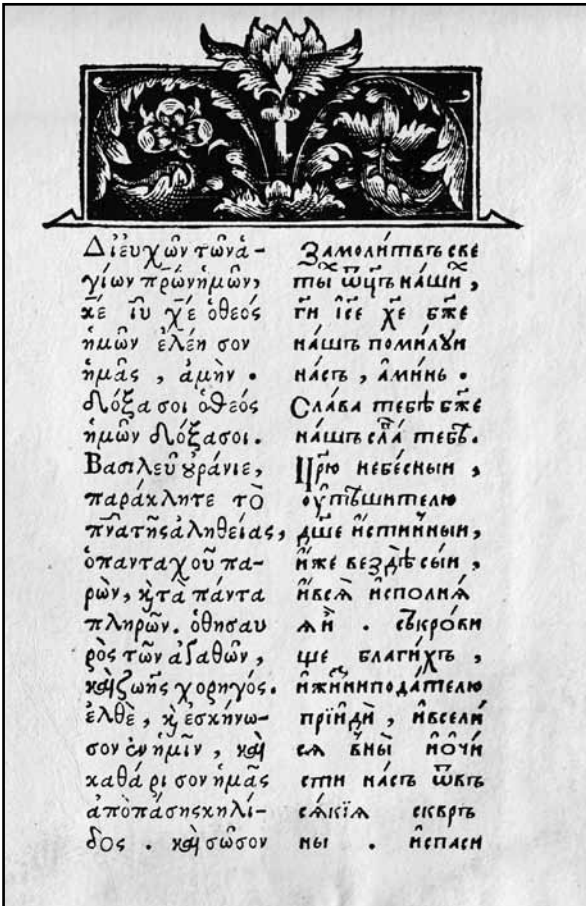 Διευχῶν τῶν ἁ-
γίων πρ̅ων ἡμῶν,
κ̅ε ι̅υ χ̅ε ὁ θεός
ἡμῶν ἐλέη σον
ἡμᾶς , ἀμὴν .
Δόξα σοι ὁ θεός
ἡμῶν Δόξα σοι .
Βασιλεῦ ȣράνιε,
παράκλητε τὸ
πν̅α τῆς ἀληθείας,
ὁ πανταχοῦ πα-
ρών, ϗ τὰ πάντα
πληρῶν. ὁ θησαυ
ρὸς τῶν ἀγαθῶν ,
καὶ ζωῆς χορηγός.
ἐλθὲ , ϗ ἐσκήνω-
σον ἐν ἡμῖν , καὶ
καθά ρι σον ἡμᾶς
ἀπὸ πάσης κηλί-
δος . καὶ σῶσον
Замоли́твъ све
ты́хъ ѿц҃ъ на́ши ,
гд҃и і҆се хе҃ бж҃е
на́шъ поми́лꙋи
на́съ , а҆ми́нь .
Сла́ва тебѣ̀ бж҃е
на́шъ сла́ тебѣ̀.
Цр҃ю небе́сныи ,
оу҆тѣ́шителю
дш҃е и҆́стинныи,
и҆́же вездѣ̀ сы́и ,
и҆всѧ̑ и҆сполнѧ́
ѧи҆ . съкро́ви
ще благи́хъ ,
и҆жи́зни пода́телю
прїидѝ , и҆всели́
сѧ вны̀ и҆ѡ҆чи́
сти на́съ ѿвъ
сѧ́кїѧ скврь
ны . и҆спаси